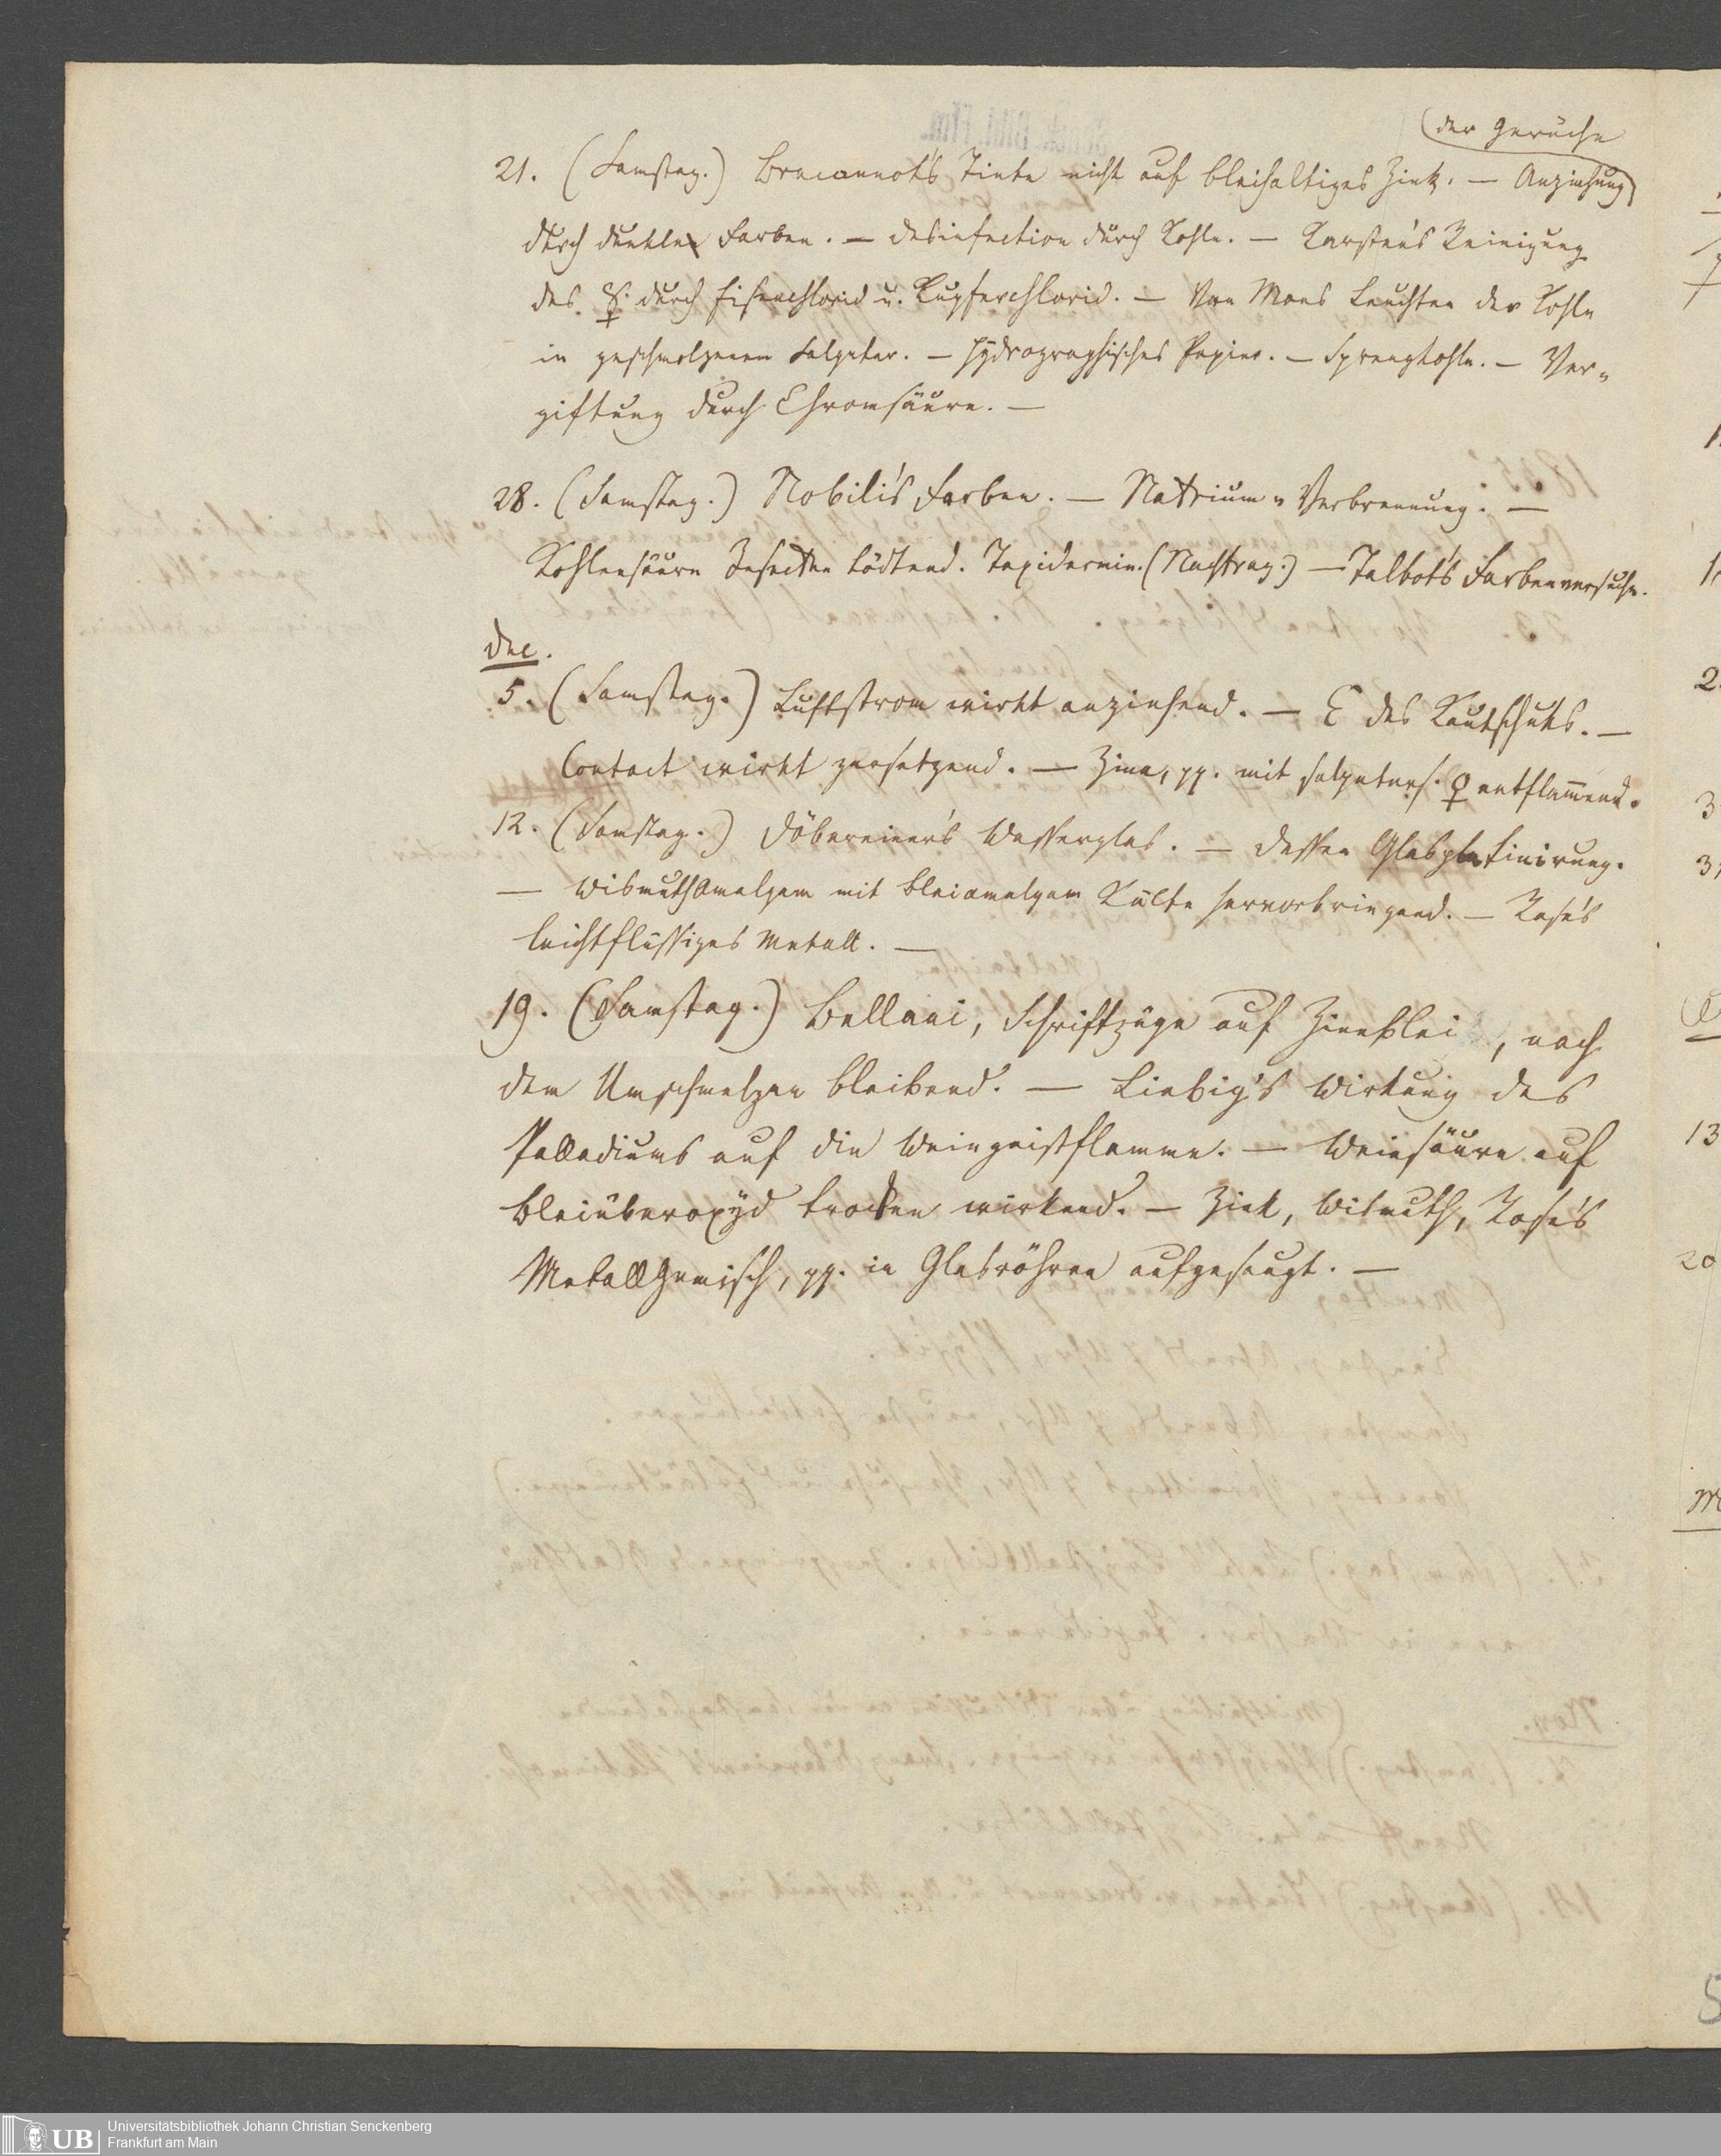 der Gerüche
21. (Samstag.) Braconnot's Tinte nicht auf bleihaltiges Zink. — Anziehung
durch dunkle Farben. — Desinfection durch Kohle. — Karsten's Reinigung
des ☿ durch Eisenchlorid u. Kupferchlorid. — Van Mons Leuchten der Kohle
in geschmolzenem Salpeter. — Hydrographisches Papier. — Sprengkohle. — Ver-
giftung durch Chromsäure. —
28. (Samstag.) Nobili's Farben. — Natrium-Verbrennung. —
Kohlensäure Insecten tödtend. Taxidermie. (Nachtrag.) — Talbot's Farbenversuche.
Dec.
5. (Samstag.) Luftstrom wirkt anziehend. — E des Kautschuks. —
Contact wirkt zersetzend. — Zinn, pp. mit salpeters. ♀ entflammend.
12. (Samstag.) Döbereiner's Wasserglas. — Dessen Glasplatinirung.
— Wismuthamalgam mit Bleiamalgam Kälte hervorbringend. — Rose's
leichtflüssiges Metall. —
19. (Samstag.) Bellani, Schriftzüge auf Zinnblei, nach
dem Umschmelzen bleibend. — Liebig's Wirkung des
Palladiums auf die Weingeistflamme. — Weinsäure auf
Bleiüberoxyd trocken wirkend. — Zink, Wismuth, Rose's
Metallgemisch, pp. in Glasröhren aufgesaugt. —
UB
Universitätsbibliothek Johann Christian Senckenberg
Frankfurt am Main